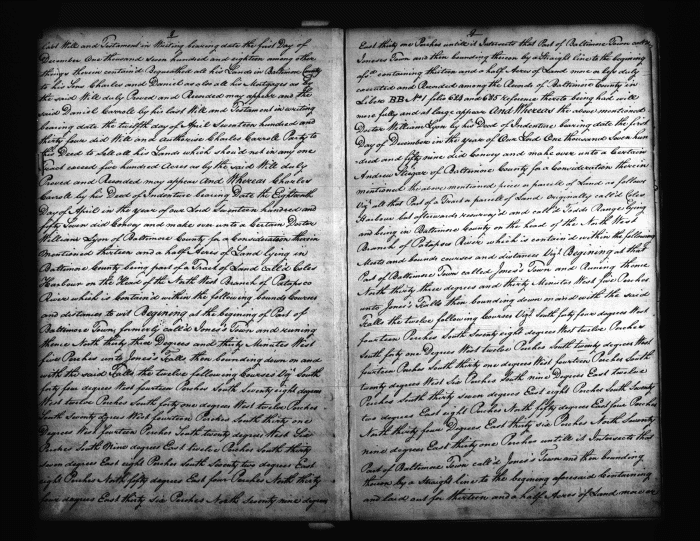 last Will and Testament in Writing bearing date the first Day of
December One thousand Seven hundred and eighteen among other
things therein contain'd Bequeathed all his Lands in Baltimore County
to his Sons Charles and Daniel as also all his Mortgages as by
the said Will duly Proved and Recorded may appear and the
said Daniel Carroll by his last Will and Testament in writing
bearing date the twelfth day of April Seventeen hundred and
thirty four did Will and authorize Charles Carroll Party to
this Deed to Sell all his Lands which should not in any one
Tract exceed five hundred Acres as by the said Will duly
Proved and Recorded may appear And Whereas Charles
Carroll by his Deed of Indenture bearing Date the Eighteenth
Day of April in the year of our Lord Seventeen hundred and
fifty Seven did Convey and make over unto a Certain Doctor
William Lyon of Baltimore County for a Consideration therein
mentioned thirteen and a half Acres of Land lying in
Baltimore County being part of a Tract of Land Call'd Coles
Harbour on the Head of the North West Branch of Patapsco
River which is Contained within the following bounds Courses
and distances to wit Begining at the begining of Part of
Baltimore Town formerly call'd Jones's Town and runing
thence North thirty three Degrees and thirty Minutes West
five Perches unto Jones's Falls then bounding down on and
with the said Falls the twelve following Courses Vizt South
forty four degrees West fourteen Perches South Seventy eight degrees
West twelve Perches South forty one degrees West twelve Perches
South Twenty degrees West fourteen Perches South thirty one
Degrees West fourteen Perches South twenty degrees West Six
Perches South Nine degrees East twelve Perches South thirty
seven degrees East eight Perches South Seventy two degrees East
eight Perches North fifty degrees East four Perches North thirty
four degrees East thirty six Perches North Seventy nine degrees
East thirty one Perches untill it Intersects that Part of Baltimore Town call'd
Joneses Town and then bounding thereon by a Straight line to the begining
afsd. containing thirteen and half Acres of Land more or less duly
executed and Recorded among the Records of Baltimore County in
Liber BB No. 1 folio 624 and 625 Reference thereto being had will
more fully and at large appear And Whereas the above mentioned
Doctor William Lyon by his Deed of Indenture bearing date the first
Day of December in the year of Our Lord One thousand Seven hun
dred and fifty nine did Convey and make over unto a Certain
Andrew Steigar of Baltimore County for a Consideration therein
mentioned the above mentioned piece or parcell of Land as follows
Vizt all that Part of a Tract or parcell of Land originally call'd Coles
Harbour but afterwards resurvey'd and call'd Todds Range lying
and being in Baltimore County on the head of the North West
Branch of Patapsco River which is contain'd within the following
Meets and bounds courses and distances Vizt Begining at the
Part of Baltimore Town called Jones's Town and Runing thence
North thirty three degrees and thirty Minutes West five Perches
unto Jones's Falls then bounding down on and with the said
Falls the twelve following Courses Vizt South forty four degrees West
fourteen Perches South Seventy eight degrees West twelve Perches
South forty one Degrees West twelve Perches South twenty degrees West
fourteen Perches South thirty one degrees West fourteen Perches South
twenty degrees West Six Perches South nine Degrees East twelve
Perches South thirty seven degrees East eight Perches South Seventy
two degrees East eight Perches North fifty degrees East four Perches
North thirty four Degrees East thirty six Perches North Seventy
nine degrees East thirty one Perches untill it Intersects that
Part of Baltimore Town call'd Jones's Town and then bounding
thereon by a Straight line to the begining aforesaid Containing
and laid out for thirteen and a half Acres of Land more or